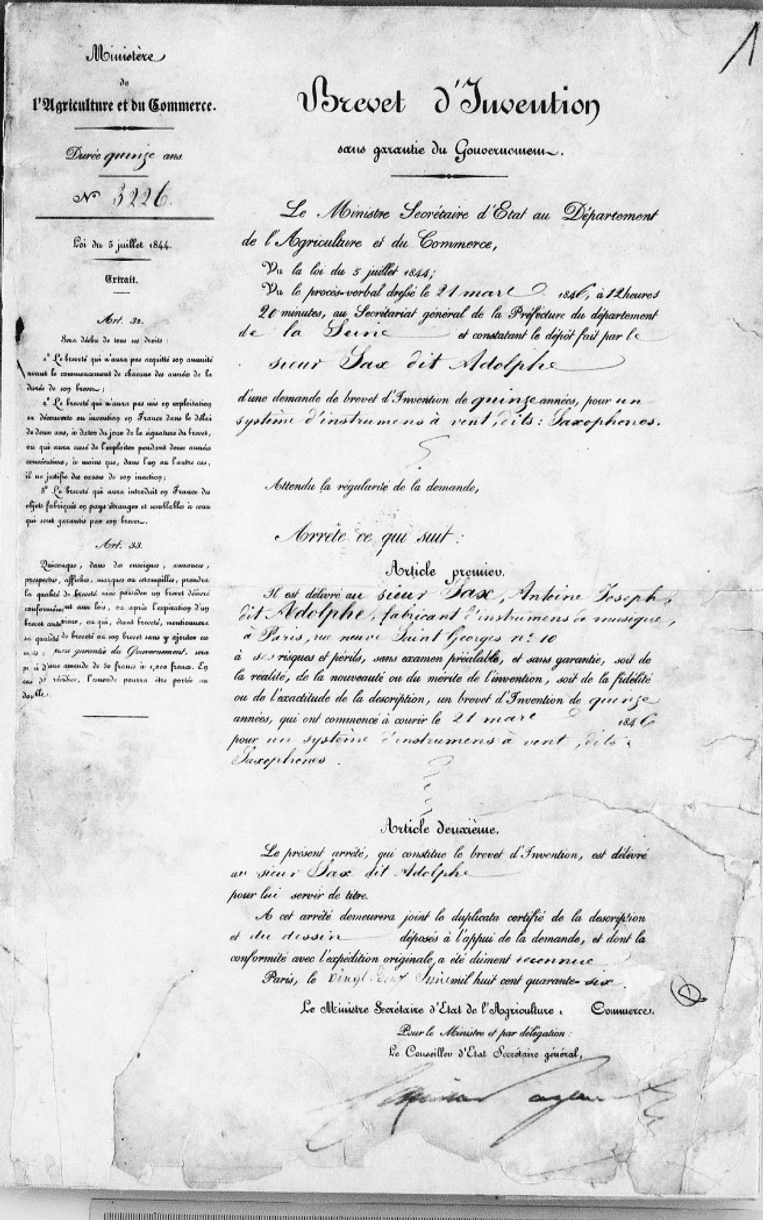 1
Ministère
de
l'Agriculture et du Commerce.
Durée quinze ans
N° 3226.
Loi du 5 juillet 1844.
Extrait.
Art. 32.
Sera déchu de tous ses droits :
1° Le breveté qui n'aura pas acquitté son annuité
avant le commencement de chacune des années de la
durée de son brevet ;
2° Le breveté qui n'aura pas mis en exploitation
sa découverte ou invention en France dans le délai
de deux ans, à dater du jour de la signature du brevet,
ou qui aura cessé de l'exploiter pendant deux années
consécutives, à moins que, dans l'un ou l'autre cas,
il ne justifie des causes de son inaction ;
3° Le breveté qui aura introduit en France des
objets fabriqués en pays étranger et semblables à ceux
qui sont garantis par son brevet.
Art. 33.
Quiconque, dans des enseignes, annonces,
prospectus, affiches, marques ou estampilles, prendra
la qualité de breveté sans posséder un brevet délivré
conformément aux lois, ou après l'expiration d'un
brevet antérieur, ou qui, étant breveté, mentionnera
sa qualité de breveté ou son brevet sans y ajouter ces
mots, sans garantie du Gouvernement, sera
puni d'une amende de 50 francs à 1,000 francs. En
cas de récidive, l'amende pourra être portée au
double.
Brevet d'Invention
sans garantie du Gouvernement.
Le Ministre Secrétaire d'Etat au Département
de l'Agriculture et du Commerce,
Vu la loi du 5 juillet 1844;
Vu le procès-verbal dressé le 21 mars 1846, à 12 heures
20 minutes, au Secrétariat général de la Préfecture du département
de la Seine et constatant le dépôt fait par le
sieur Sax dit Adolphe
d'une demande de brevet d'Invention de quinze années, pour un
système d'instrumens à vent, dits : Saxophones.
Attendu la régularité de la demande,
Arrête ce qui suit :
Article premier.
Il est délivré au sieur Sax, Antoine Joseph,
dit Adolphe, fabricant d'instrumens de musique,
à Paris, rue neuve Saint Georges n° 10
à ses risques et périls, sans examen préalable, et sans garantie, soit de
la réalité, de la nouveauté ou du mérite de l'invention, soit de la fidélité
ou de l'exactitude de la description, un brevet d'Invention de quinze
années, qui ont commencé à courir le 21 mars 1846
pour un système d'instrumens à vent, dits :
Saxophones.
Article deuxième.
Le présent arrêté, qui constitue le brevet d'Invention, est délivré
au sieur Sax dit Adolphe
pour lui servir de titre.
A cet arrêté demeurera joint le duplicata certifié de la description
et du dessin déposés à l'appui de la demande, et dont la
conformité avec l'expédition originale a été dûment reconnue
Paris, le vingt deux Juin mil huit cent quarante-six.
Le Ministre Secrétaire d'Etat de l'Agriculture Commerce.
Pour le Ministre et par délégation :
Le Conseiller d'Etat Secrétaire général,